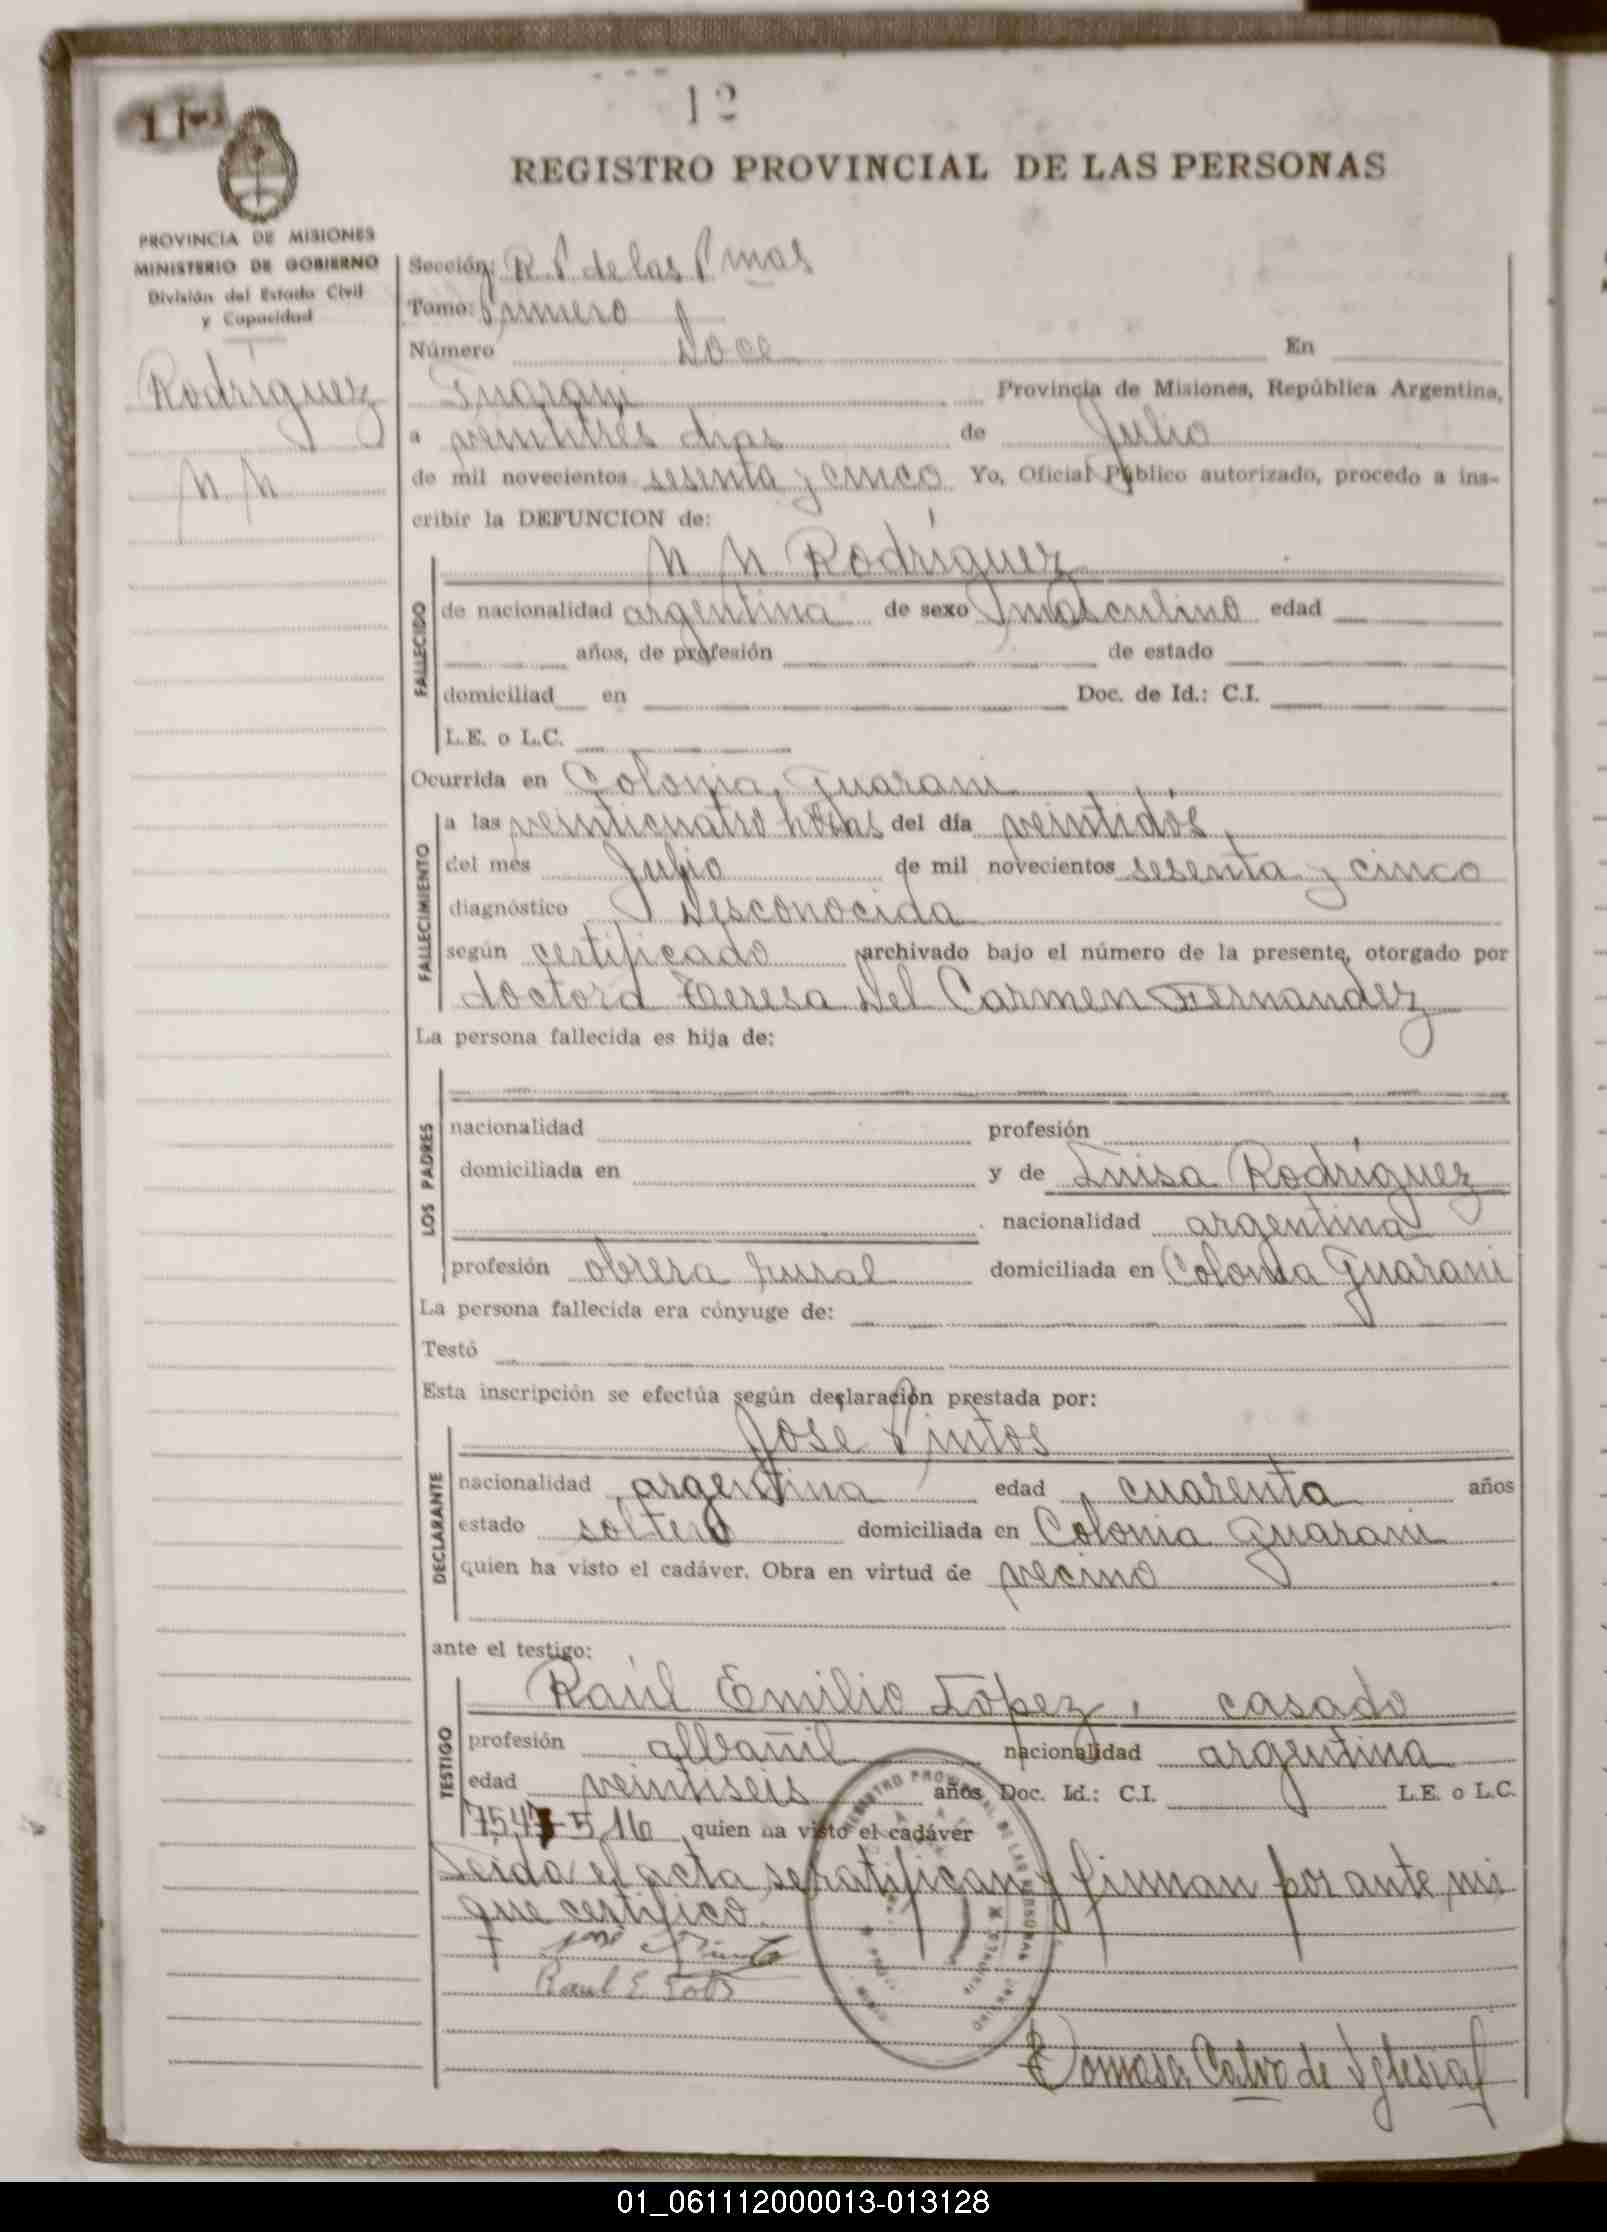 12
REGISTRO PROVINCIAL DE LAS PERSONAS
PROVINCIA DE MISIONES
MINISTERIO DE GOBIERNO
División del Estado Civil
y Capacidad
Rodríguez
N. N
Sección: R. P de las Pmas
Tomo: Primero
Número Doce En
Guarani Provincia de Misiones, República Argentina,
a veintitrés dias de Julio
de mil novecientos sesenta y cinco Yo, Oficial Público autorizado, procedo a ins-
cribir la DEFUNCION de:
N. N. Rodríguez
FALLECIDO
de nacionalidad argentina de sexo masculino edad
años, de profesión de estado
domiciliad en Doc. de Id.: C.I.
L.E. o L.C.
Ocurrida en Colonia Guarani
FALLECIMIENTO
a las veinticuatro horas del día veintidós,
del mes Julio de mil novecientos sesenta y cinco
diagnóstico Desconocida
según certificado archivado bajo el número de la presente, otorgado por
doctora Teresa Del Carmen Fernandez
La persona fallecida es hija de:
LOS PADRES
nacionalidad profesión
domiciliada en y de Luisa Rodríguez
nacionalidad argentina
profesión obrera rural domiciliada en Colonia Guarani
La persona fallecida era cónyuge de:
Testó
Esta inscripción se efectúa según declaración prestada por:
DECLARANTE
Jose Pintos
nacionalidad argentina edad cuarenta años
estado soltero domiciliada en Colonia Guarani
quien ha visto el cadáver. Obra en virtud de vecino
ante el testigo:
TESTIGO
Raúl Emilio López, casado
profesión albañil nacionalidad argentina
edad veintiseis años Doc. Id.: C.I. L.E. o L.C.
7547516 quien ha visto el cadáver
Leída el acta se ratifican y firman por ante mi
que certifico.
Raul E. 
Tomasa Calvo de Iglesias
01_061112000013-013128